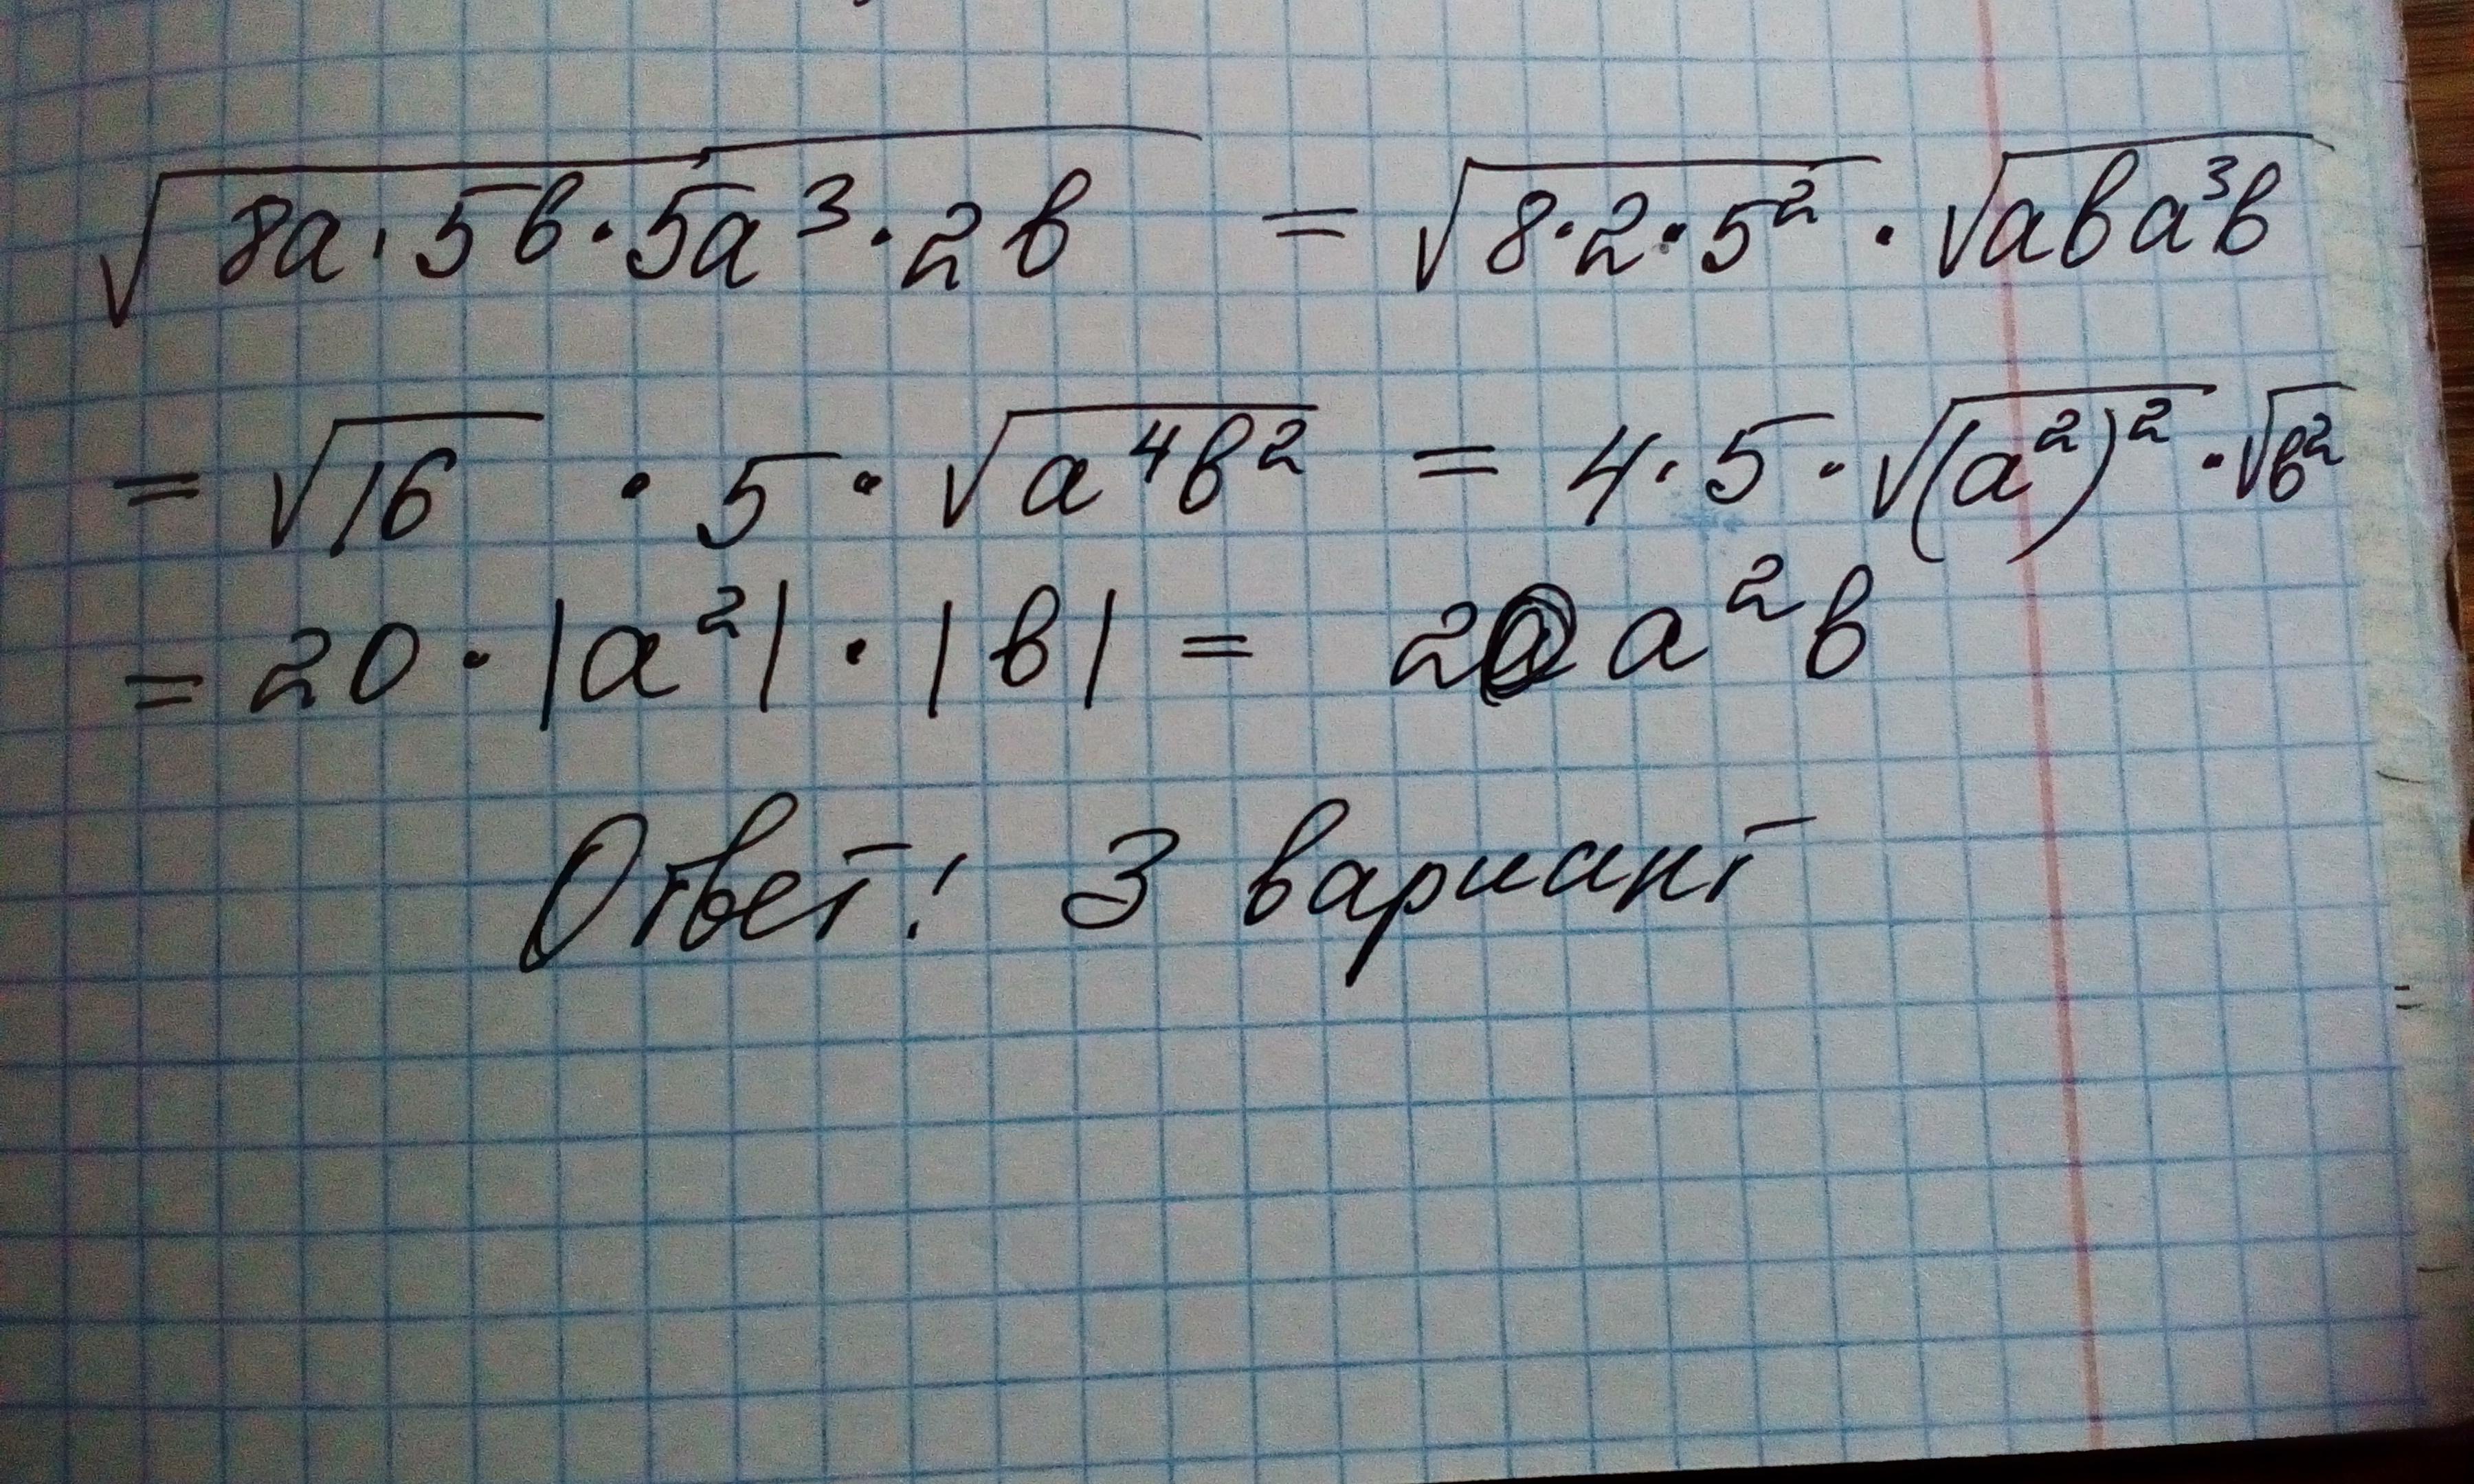 √8a·5в·5a³·2в = √8·2·5² · √aвa³в
= √16 · 5 · √a⁴в² = 4·5·√(a²)² · √в²
= 20·|a²|·|в| = 20 a²в
Ответ: 3 вариант